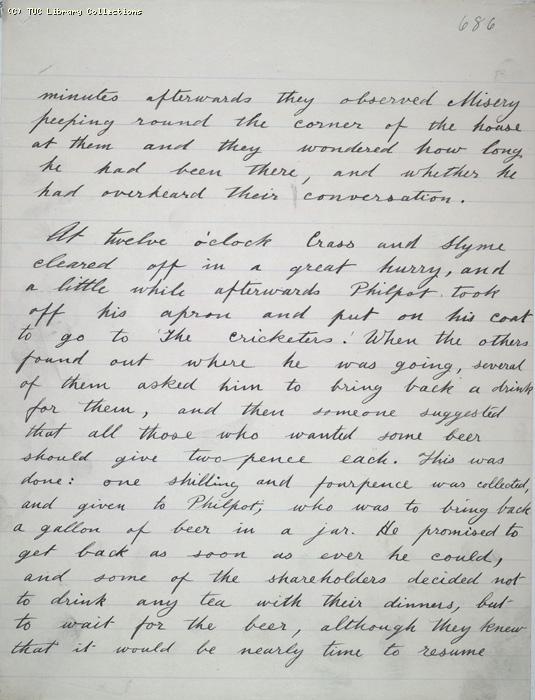 (C) TUC Library Collections
686
minutes afterwards they observed Misery
peeping round the corner of the house
at them and they wondered how long
he had been there, and whether he
had overheard their conversation.
At twelve o'clock Crass and Slyme
cleared off in a great hurry, and
a little while afterwards Philpot took
off his apron and put on his coat
to go to 'The cricketers.' When the others
found out where he was going, several
of them asked him to bring back a drink
for them, and then someone suggested
that all those who wanted some beer
should give two pence each. This was
done: one shilling and fourpence was collected,
and given to Philpot, who was to bring back
a gallon of beer in a jar. He promised to
get back as soon as ever he could,
and some of the shareholders decided not
to drink any tea with their dinners, but
to wait for the beer, although they knew
that it would be nearly time to resume